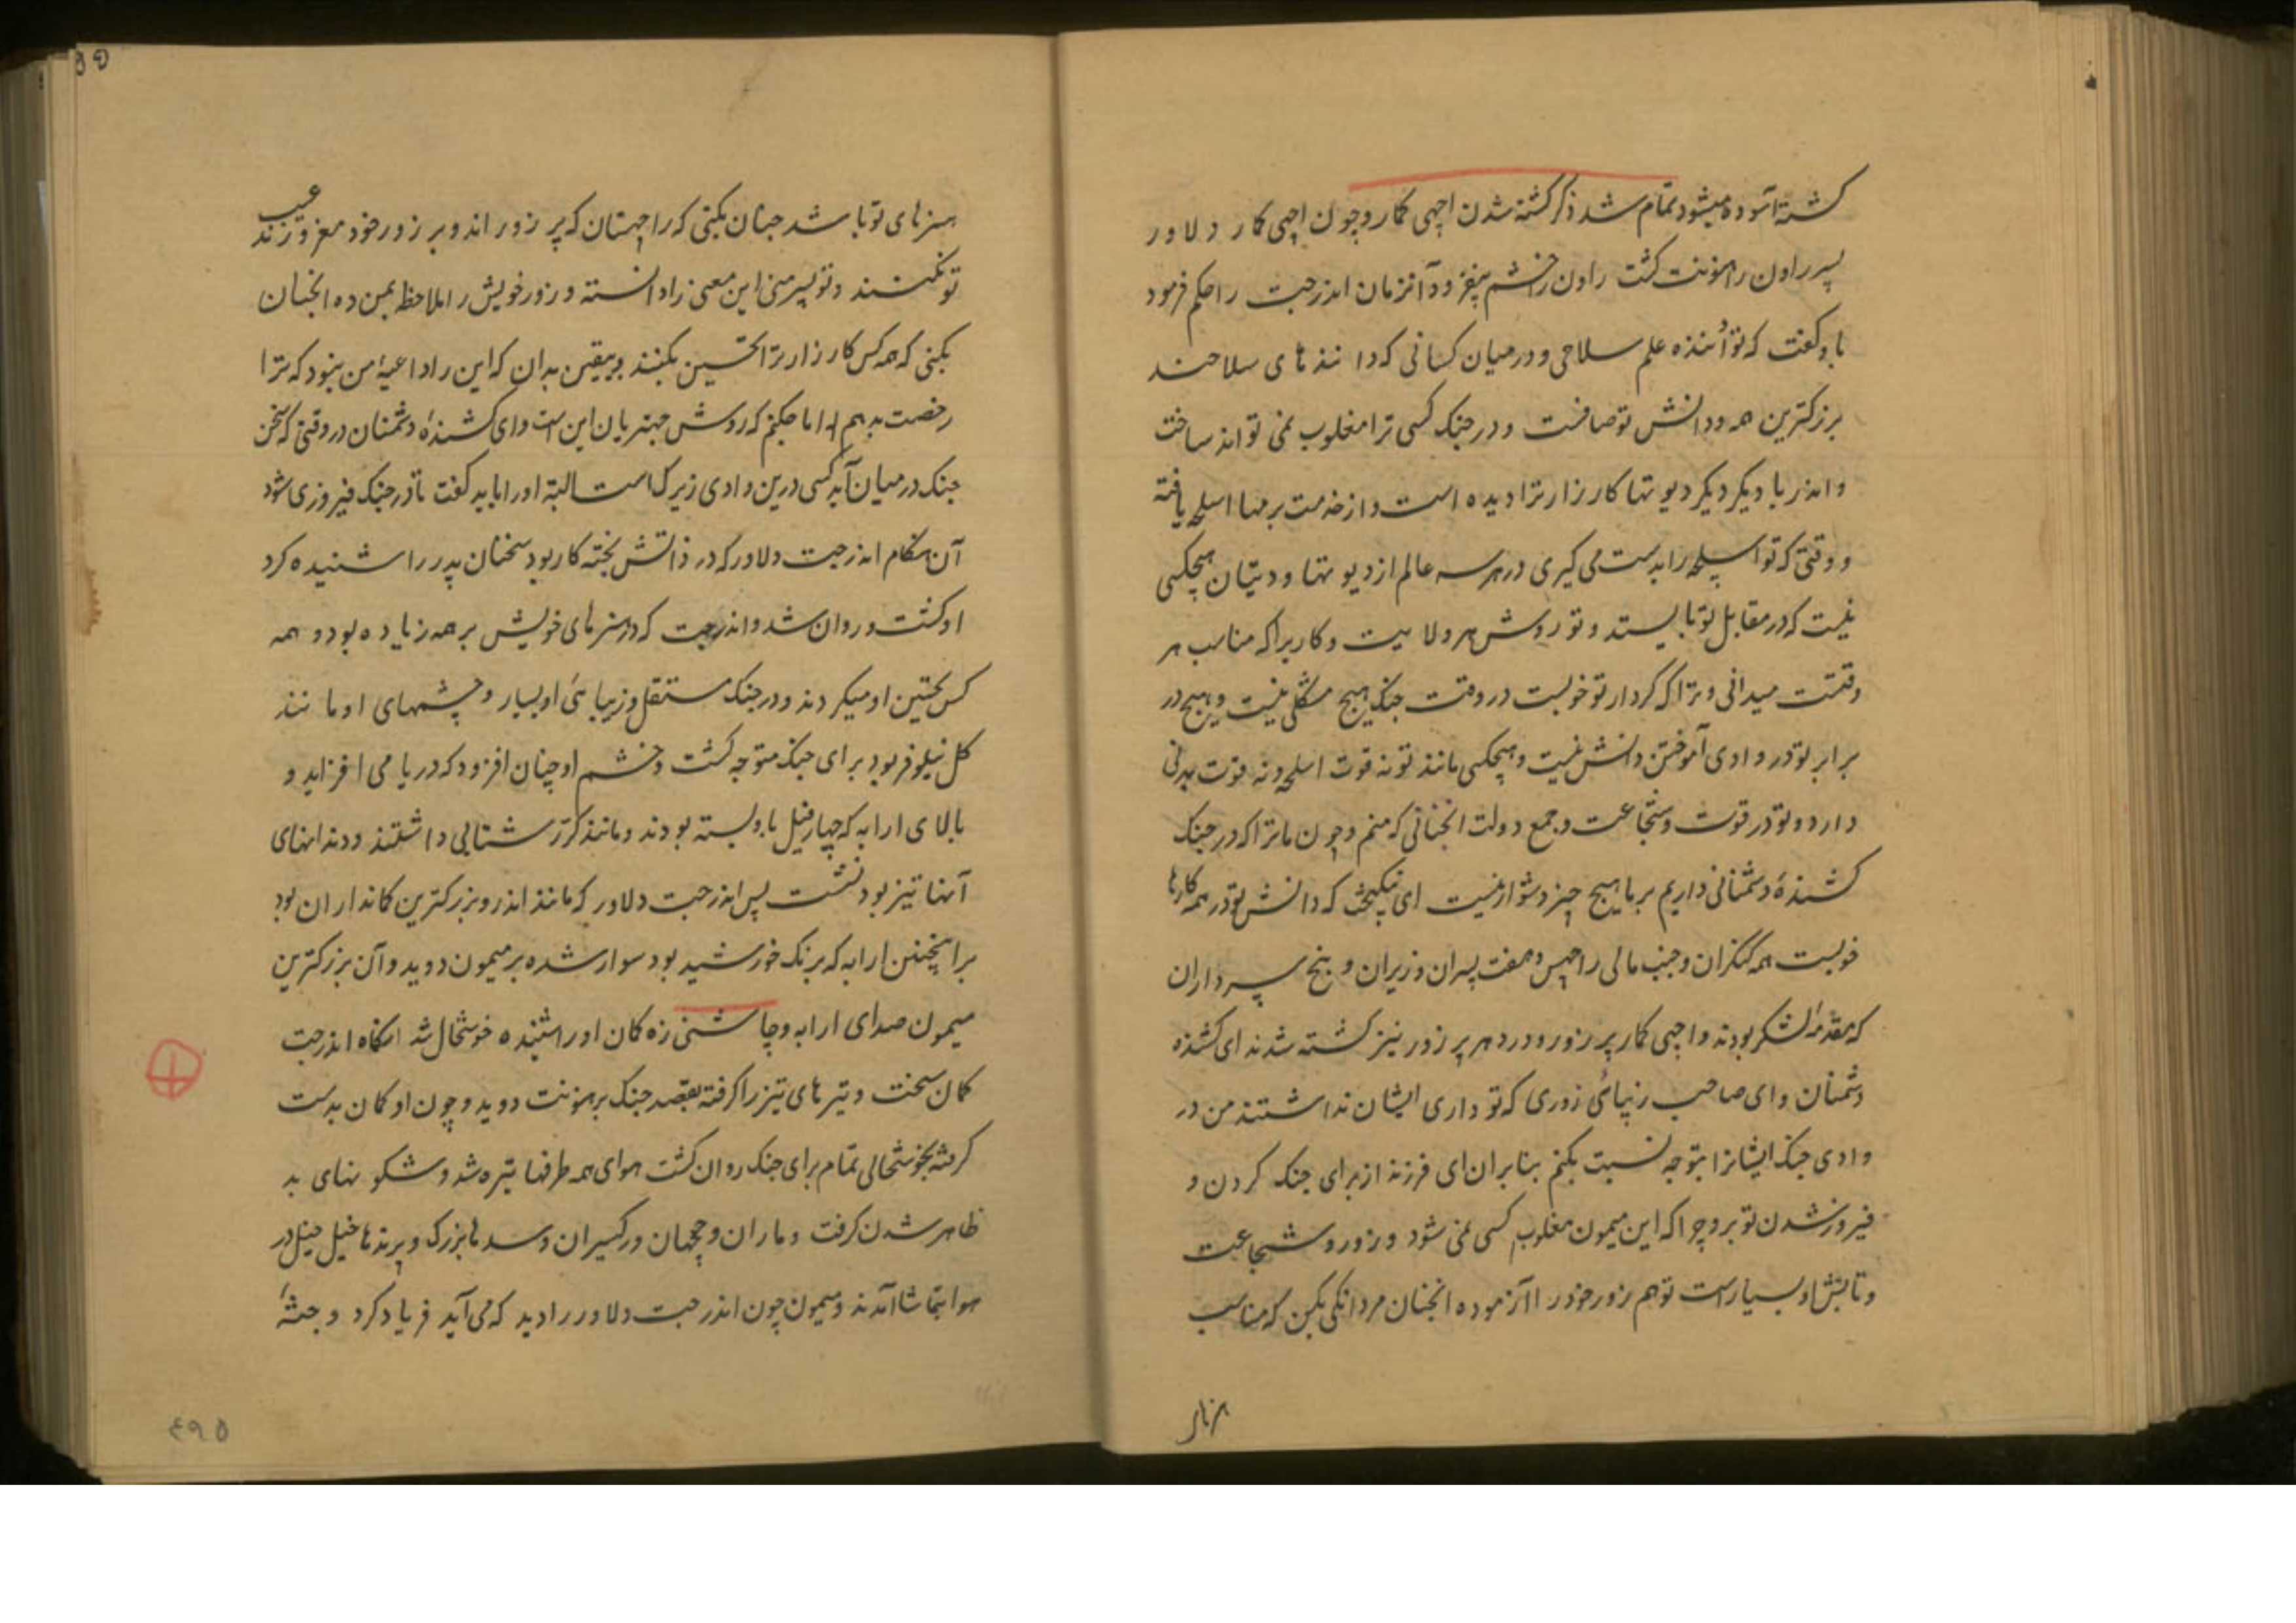 کشته آسوده میشود تمام شد ذکر کشته شدن اچهی کمار و چون اچهی کمار دلاور
پسر راون را هنونت کشت راون را خشم بیفزود و آنزمان اندرجت را حکم فرمود
باو گفت که تو داننده علم سلاحی و در میان کسانی که دانندهای سلاحند
بزرکترین همه و دانش تو صافست و در جنک کسی ترا مغلوب نمی تواند ساخت
و اندر با دیکر دیوتها کارزار ترا دیده است و از خدمت برمها اسلحه یافتهٔ
و وقتی که تو اسلحه را بدست می کیری در هر سه عالم از دیوتها و دیتیان هیچکسی
نیست که در مقابل تو بایستد و تو روش هر ولایت و کار براکه مناسب هر
وقتست میدانی و ترا که کردار تو خوبست در وقت جنک هیچ مشکلی نیست و هیچ در
برابر تو در وادی آموختن دانش نیست و هیچکسی مانند تو نه قوت اسلحه و نه قوت بدنی
دارد و تو در قوت و شجاعت و جمع دولت انچنانی که منم و چون ما ترا که در جنک
کشندهٔ دشمنانی داریم بر ما هیچ چیز دشوار نیست ای نیکبخت که دانش تو در همه کارها
خوبست همه کنکران و جنب مالی راچهس و هفت پسران وزیران و پنج سرداران
که مقدمهٔ لشکر بودند و اچهی کمار پر زور و دردهر پر زور نیز کشته شدند ای کشنده
دشمنان و ای صاحب زیبائی زوری که تو داری ایشان نداشتند من در
وادی جنک ایشانرا بتو چه نسبت بکنم بنابران ای فرزند از برای جنک کردن و
فیروز شدن تو برو چرا که این میمون مغلوب کسی نمی شود و زور و شجاعت
و تابش او بسیار است تو هم زور خود را آزموده انچنان مردانکی بکن که مناسب
هنرهای
هنرهای تو باشد چنان بکنی که راچهسان که پر زور اند و بر زور خود مغروزند عیب
تو نکنند و تو پسر منی این معنی را دانسته و زور خویش را ملاحظه بمن ده انچنان
بکنی که همه کس کارزار ترا تحسین بکنند و بیقین بدان که این را داعیهٔ من نبود که ترا
رخصت بدهم اما چکنم که روش چهتریان این است و ای کشندهٔ دشمنان در وقتی که سخن
جنک در میان آید کسی درین وادی زیرک است البته او را باید کفت تا در جنک فیروزی شود
آن هنکام اندرجت دلاور که در ذاتش پخته کار بود سخنان پدر را شنیده کرد
او کشت و روان شد و اندرجت که در هنرهای خویش بر همه زیاده بود و همه
کس تحسین او میکردند و در جنک مستقل و زیبائی او بسیار و چشمهای او مانند
کل نیلوفر بود برای جنک متوجه کشت و خشم او چنان افزود که دریا می افزاید و
بالای ارابه که چهار فیل باو بسته بودند و مانند کرر شتابی داشتند و دندانهای
آنها تیز بود نشست پس اندرجت دلاور که مانند اندر و بزرکترین کمانداران بود
بر انچنین ارابه که برنک خورشید بود سوار شده بر میمون دوید و آن بزرکترین
میمون صدای ارابه و چاشنی زه کمان او را شنیده خوشحال شد انکاه اندرجت
کمان سخت و تیرهای تیز را کرفته بقصد جنک بر هنونت دوید و چون او کمان بدست
کرفته بخوشحالی تمام برای جنک روان کشت هوای همه طرفها تیره شد و شکونهای بد
ظاهر شدن کرفت و ماران و چهیان و رکهیسران و سدهها بزرک و پرندها خیل خیل در
هوا بتماشا آمدند و میمون چون اندرجت دلاور را دید که می آید فریاد کرد و جثهٔ
۴۹۵